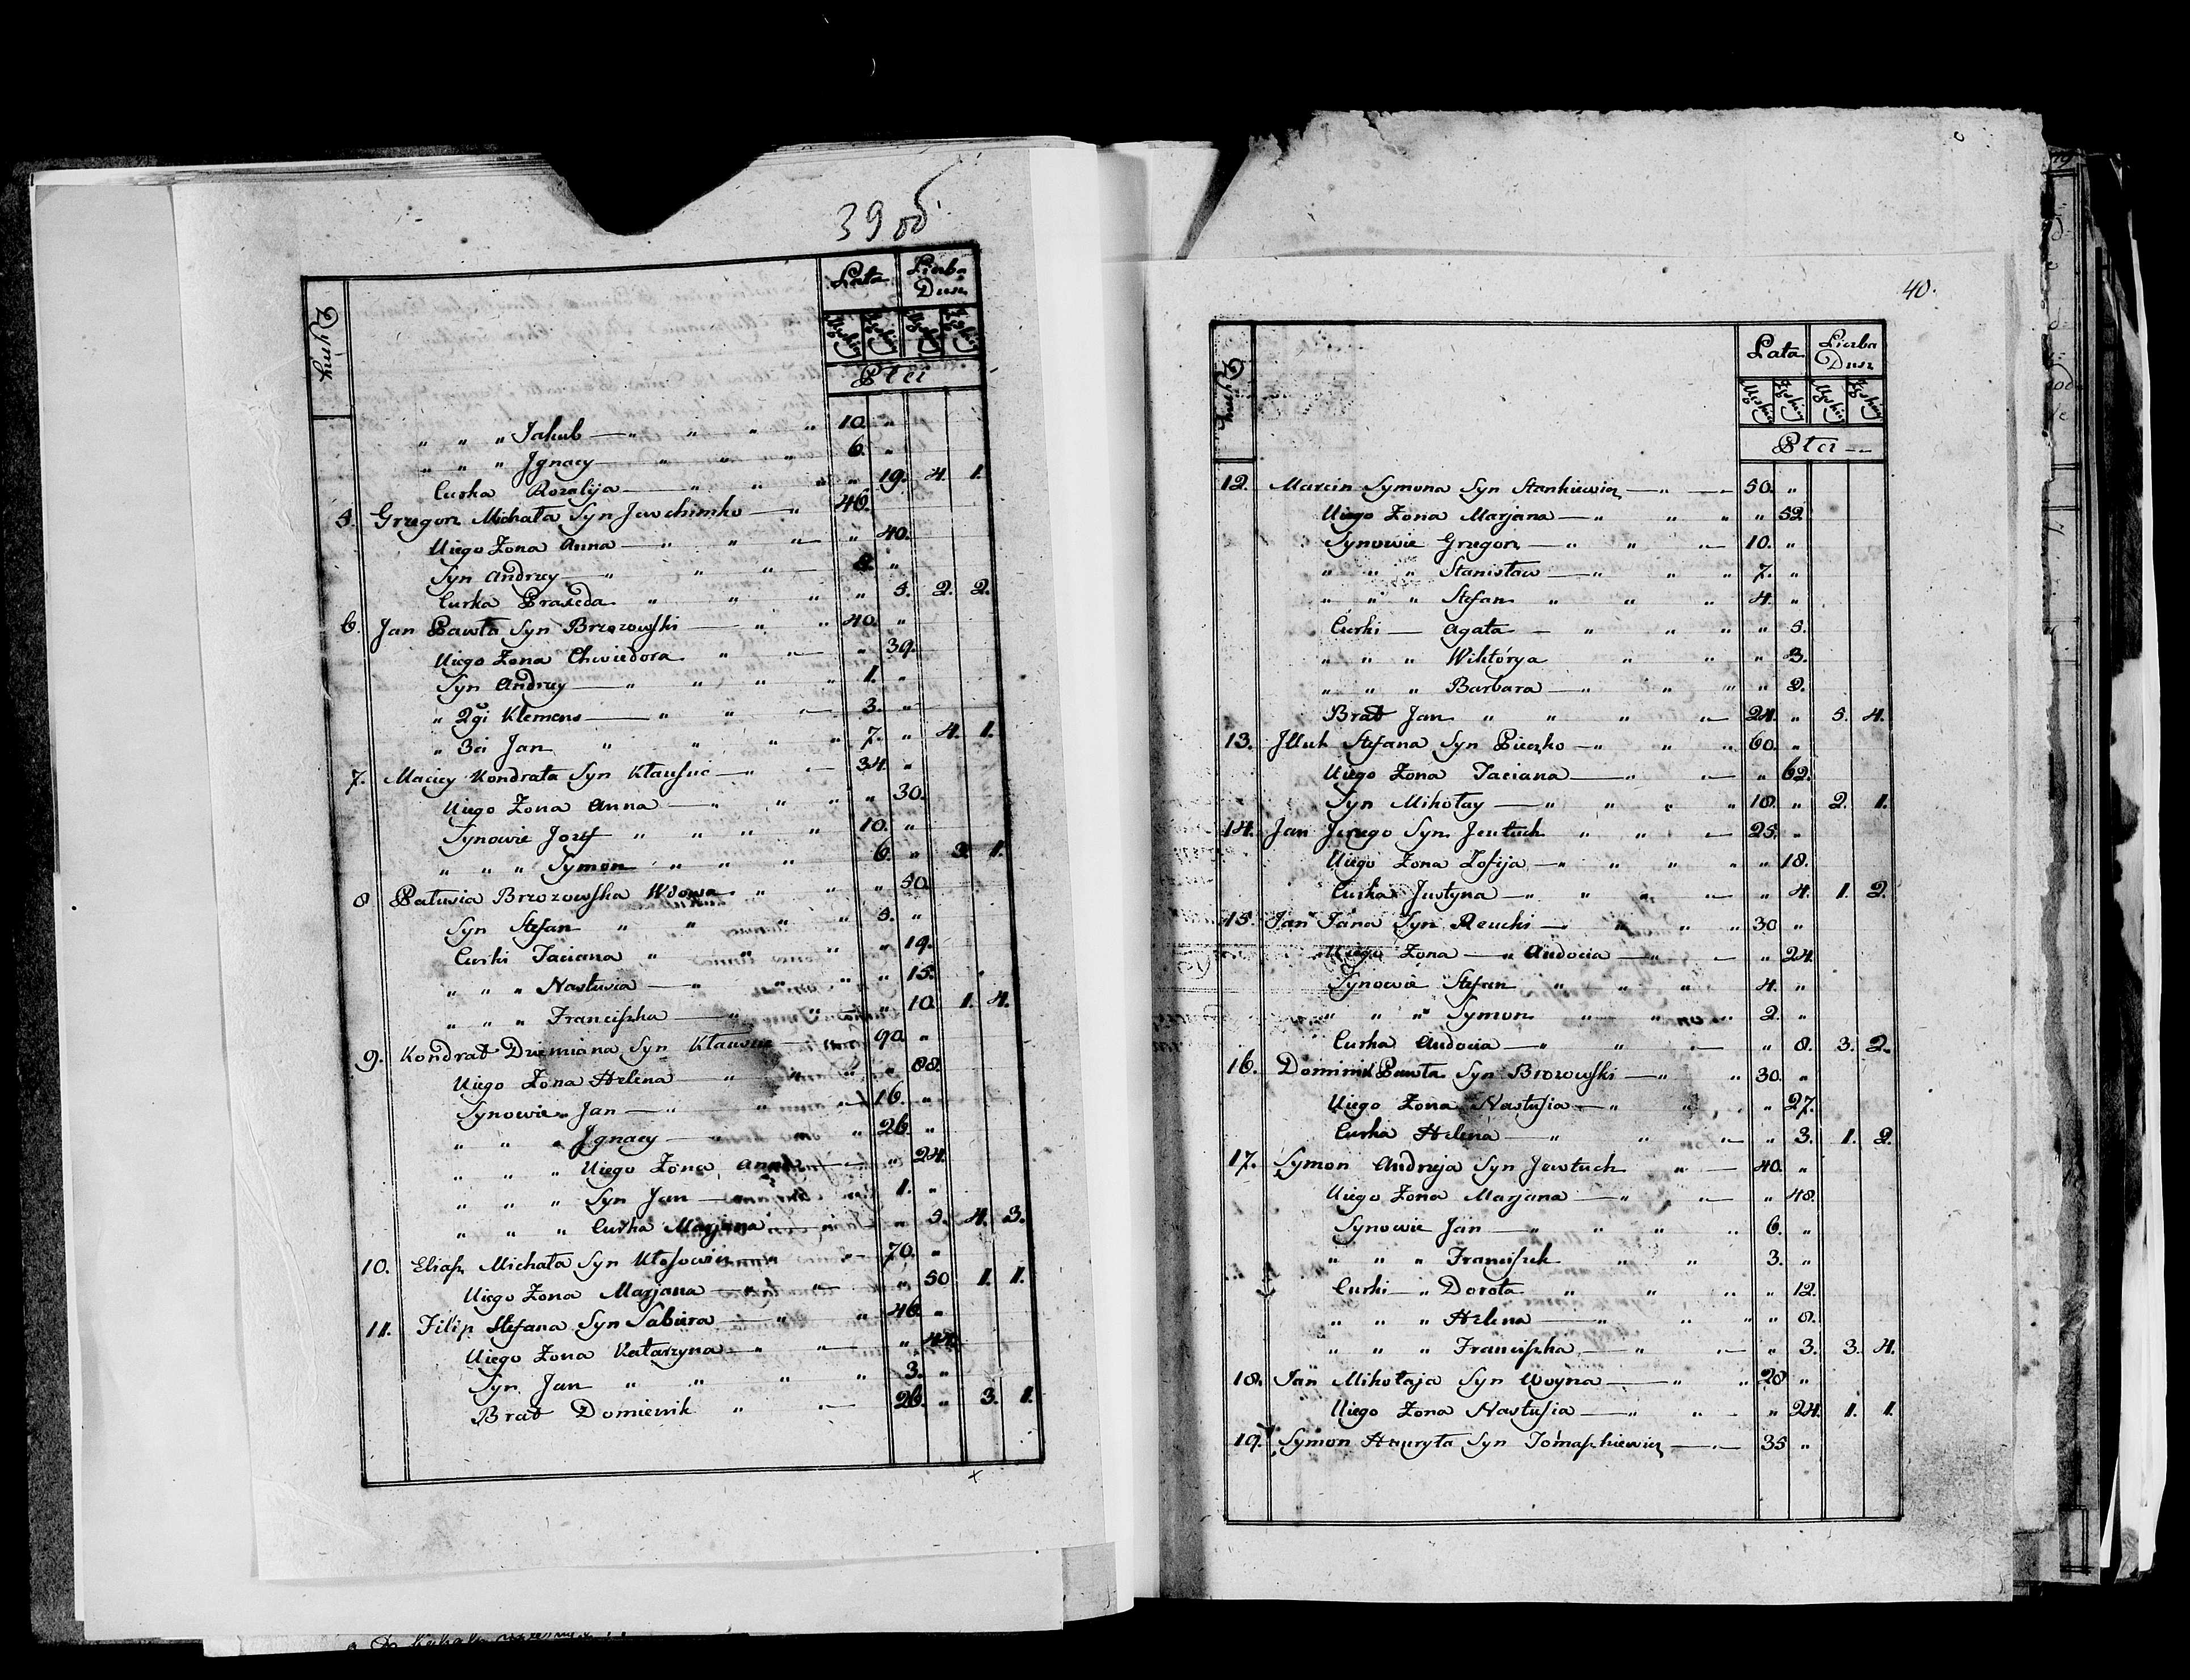 39 об.
Dymy Lata Liczba
Dusz
Męskiey Żeńskiey Męskiey Żeńskiey
Płci
" " " Jakub — " " " " 10. "
" " " Jgnacy — " " " 6. "
Curka Rozalija — " " " " 19. 4. 1.
5. Grzegorz Michała Syn Jewchimko — " 46.
Uiego Żona Anna — " " " — " 40.
Syn Andrzey — " " " — 8. "
Curka Praxeda " " " " 5. 2. 2.
6. Jan Pawła Syn Brzozowski — " " 40. "
Uiego Żona Chwiedora " " — " 39.
Syn Andrzey — " " " " 1. "
" 2gi Klemens — " " " — 3. "
" 3ci Jan " " " " 7. " 4. 1.
7. Maciey Kondrata Syn Kłausuc — " " — 34. "
Uiego Żona Anna — " " " " 30.
Synowie Jozef " " " " 10. "
" " " Symon " " " 6. " 3. 1.
8 Patusia Brzozowska Wdowa " " " 50.
Syn Stefan " " " " 5. "
Curki Taciana " " " " 19.
" " " Nastusia — " " " " 15.
" " " Franciszka — " " " 10. 1. 4.
9. Kondrat Dziemiana Syn 90. "
Uiego Żona Helena — " " " " 88.
Synowie " Jan — " " — 16. "
" " " Jgnacy — " " 26. "
" " " Uiego Żona Anna — " 24.
" " " Syn Jan — 1. "
" " " Curka Marjana — " 5. 4. 3.
10. Eliasz Michała Syn — 70. "
Uiego Żona Marjana — " " — " 50 1. 1.
11. Filip Stefana Syn Sabiera — " " 46. "
Uiego Żona Katarzyna — " " — "
Syn Jan " " " " 3. "
Brat Domienik " " — 26. " 3. 1.
x
40.
Dymy Lata Liczba
Dusz
Męskiey Żeńskiey Męskiey Żeńskiey
Płci
12. Marcin Symona Syn Stankiewicz — " — 50. "
Uiego Żona Marjana — " " " " 52
Synowie Grzegorz — " " " — 10. "
" " " Stanisław — " " " 7. "
" " " Stefan " " " 4. "
Curki — Agata — " " " " 5.
" " " Wiktórya " " " 3.
" " " Barbara — " " " " 2.
Brat Jan " " " " — 24. " 5. 4.
13. Jlluk Stefana Syn Pieczko — " " " 60. "
Uiego Żona Taciana — " " — " 62.
Syn Mikołay — " " " " 18. " 2. 1.
14. Jan Jerzego Syn Jewtuch " " — 25. "
Uiego Żona Zofija — " " " " " 18.
Curka Justyna — " " " " — " 4. 1. 2.
15. Jan Jana Syn Reucki — " " " 30 "
Uiego Żona — " Audocia — " — " 24.
Synowie Stefan " " " 4. "
" " " Symon " " " 2. "
Curka Audocia — " " " — " 8. 3. 2.
16. Dominik Pawła Syn Brozowski — " " 30. "
Uiego Żona Nastusia — " " " 27.
Curka Helena — " " " — " 3. 1. 2.
17. Symon Andrzeja Syn Jewtuch " — 40. "
Uiego Żona Marjana — " " — " 48.
Synowie Jan — " " " " 6. "
" " " Franciszek " " 3. "
Curki — " Dorota " " " " 12.
" " " Helena — " " " " 8.
" " " Franciszka — " " — " 3. 3. 4.
18. Jan Mikołaja Syn Woyna — " " 28 "
Uiego Żona Nastusia — " " — " 24. 1. 1.
19. Symon Hauryła Syn Tomaszkiewicz — " — 35 "